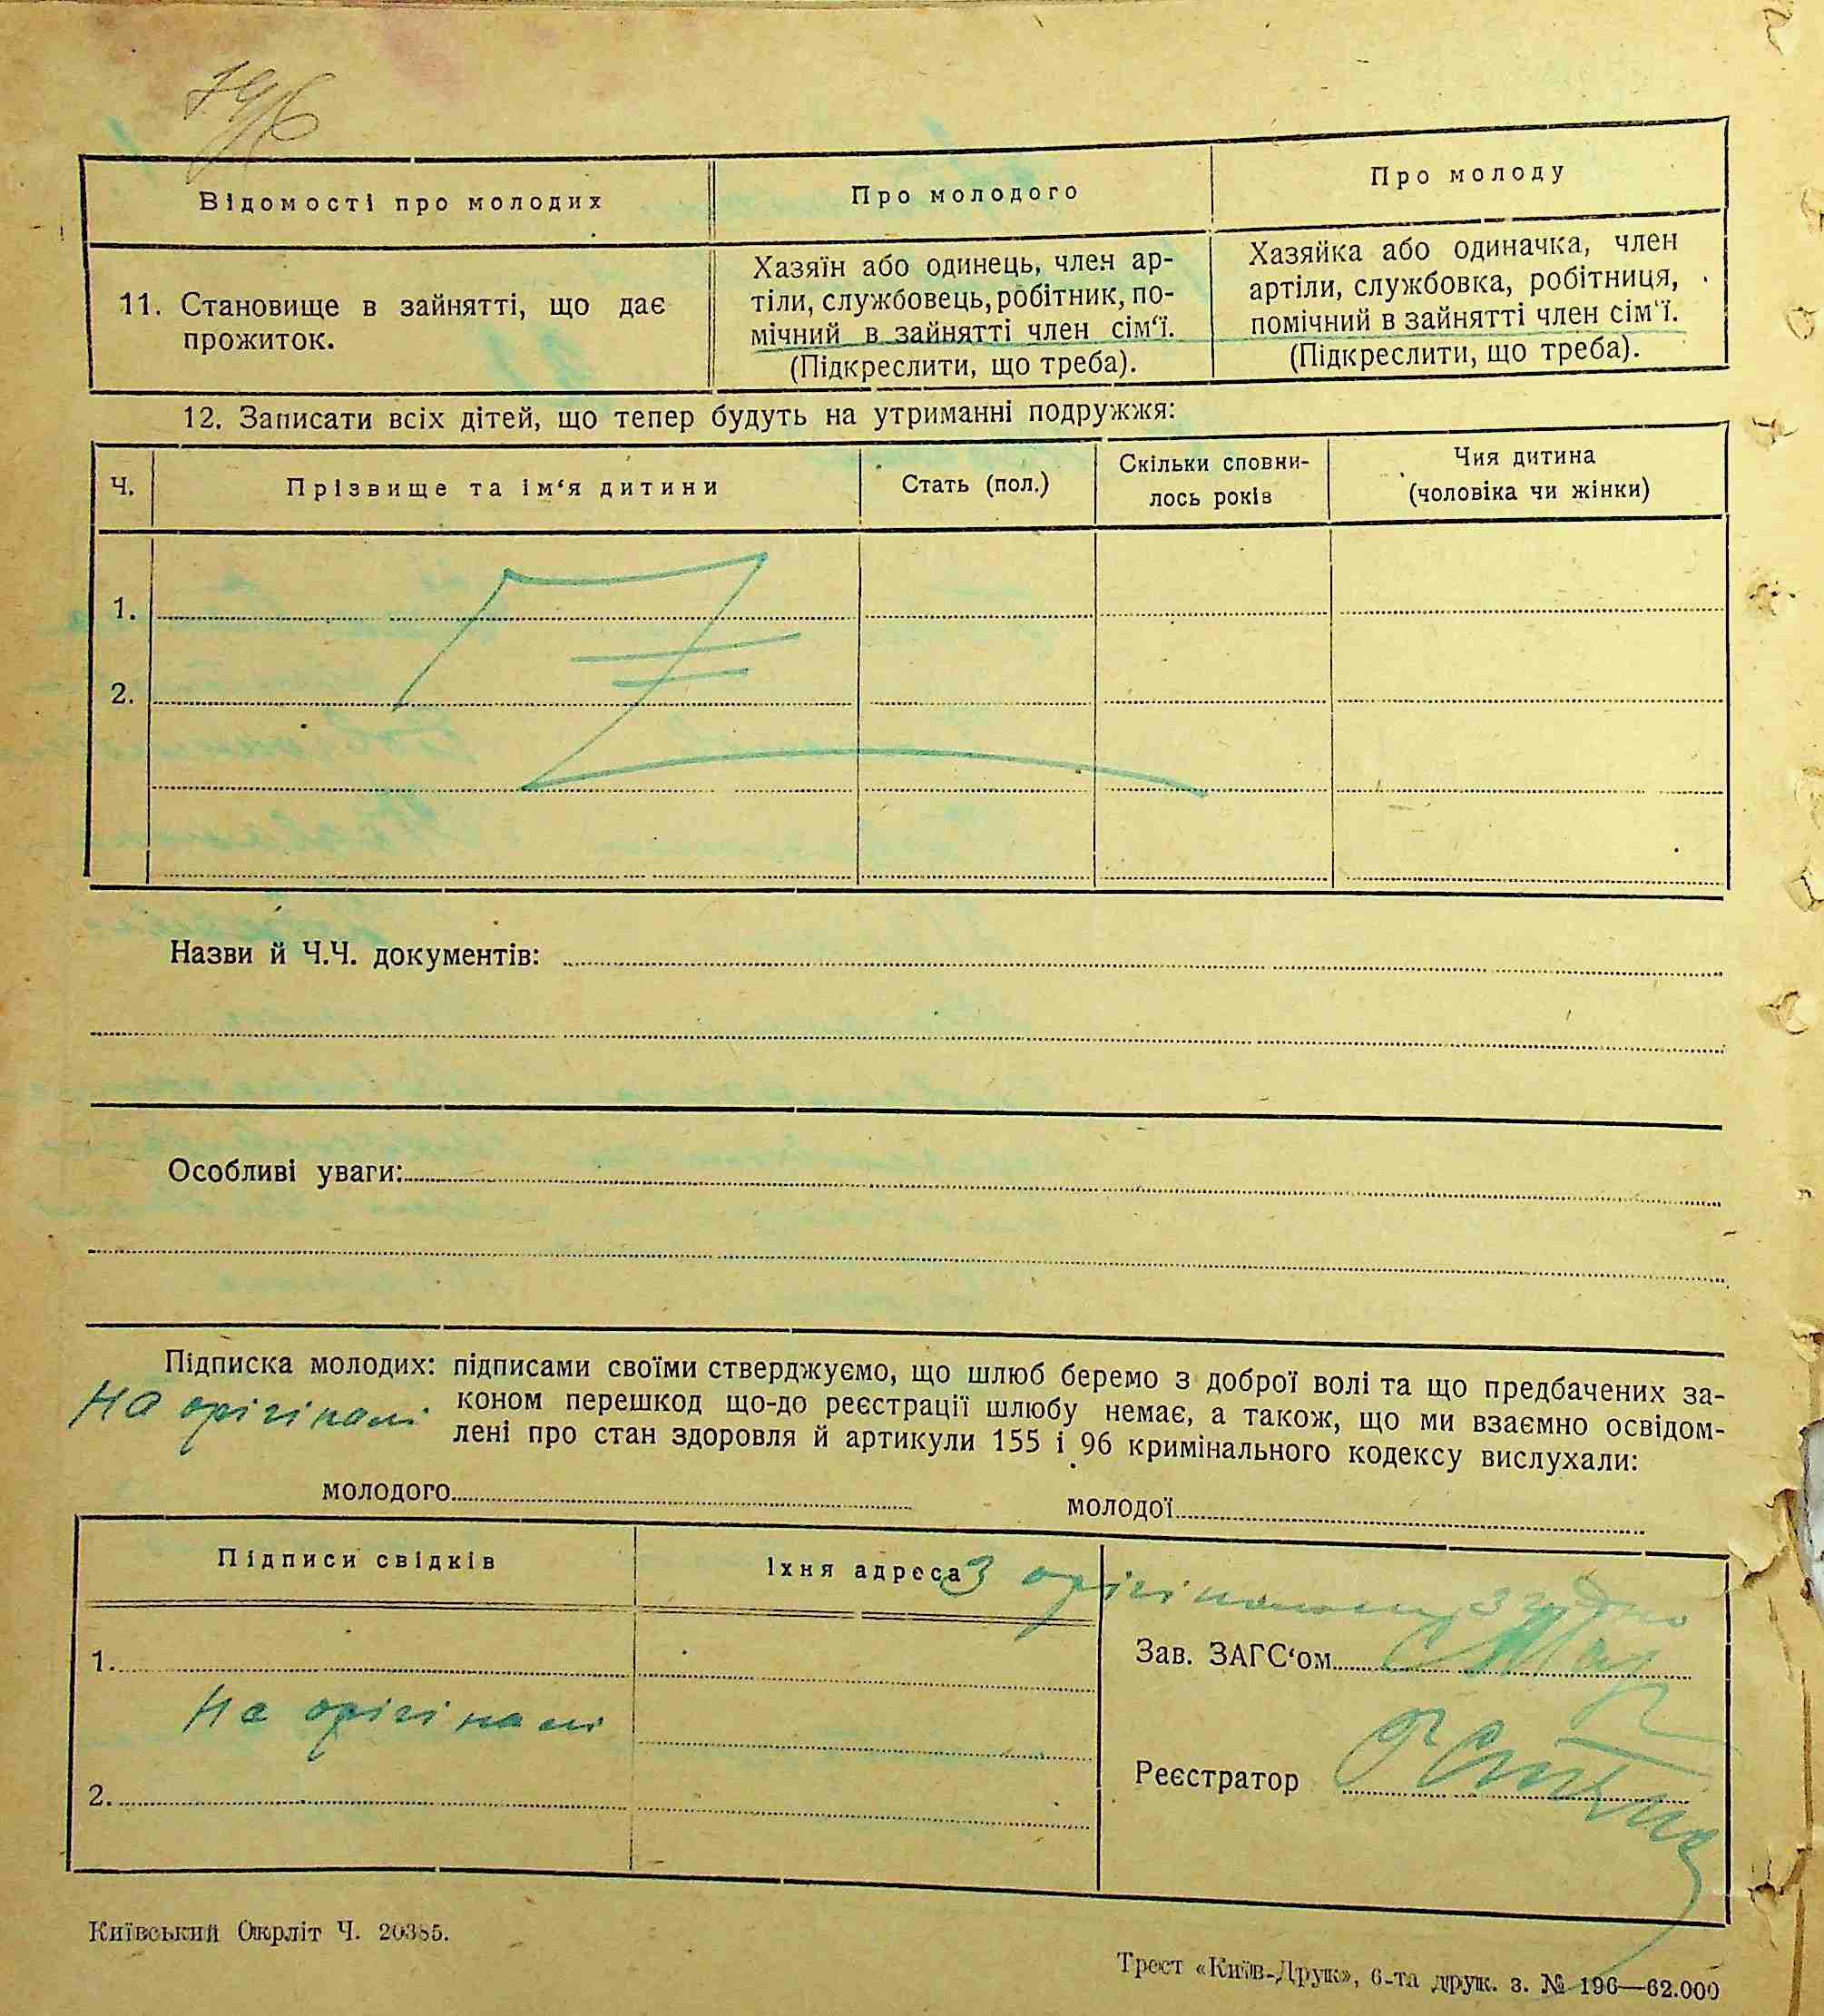 Відомості про молодих
Про молодого
Про молоду
11. Становище в зайнятті, що дає
прожиток.
Хазяїн або одинець, член ар-
тіли, службовець, робітник, по-
мічний в зайнятті член сім'ї.
(Підкреслити, що треба).
Хазяйка або одиначка, член
артіли, службовка, робітниця,
помічний в зайнятті член сім'ї.
(Підкреслити, що треба).
12. Записати всіх дітей, що тепер будуть на утриманні подружжя:
Ч.
Прізвище та ім'я дитини
Стать (пол.)
Скільки сповни-
лось років
Чия дитина
(чоловіка чи жінки)
1.
2.
Назви й Ч.Ч. документів:
Особливі уваги:
Підписка молодих: підписами своїми стверджуємо, що шлюб беремо з доброї волі та що предбачених за-
на орігіналі
коном перешкод що-до реєстрації шлюбу немає, а також, що ми взаємно освідом-
лені про стан здоровля й артикули 155 і 96 кримінального кодексу вислухали:
молодого
молодої
Підписи свідків
Їхня адреса
З орігіналом згідно
1.
Зав. ЗАГС'ом
На орігіналі
Реєстратор
2.
Київський Окрліт Ч. 20385.
Трест «Київ-Друк», 6-та друк. з. № 196—62.000